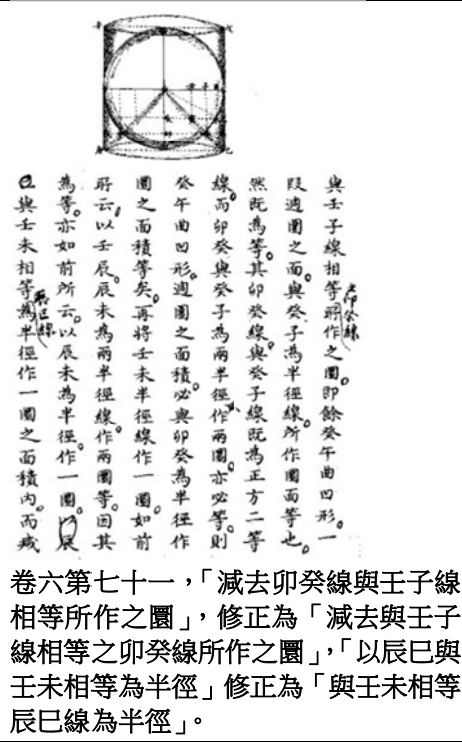 與壬子線相等所作之圜。即餘癸午曲凹形。一
之卯癸線
段遶圜之面。與癸子為半徑線。所作圜面等也。
然既為等。其卯癸線。與癸子線既為正方二等
線。而卯癸與癸子為兩半徑作兩圜。亦必等。則
癸午曲凹形。遶圜之面積。必與卯癸為半徑作
圜之面積等矣。再將壬未半徑線作一圜。如前
所云。以壬辰。辰未為兩半徑線。作兩圜等。因其
為等。亦如前所云。以辰未為半徑。作一圜。以辰
巳與壬未相等為半徑作一圜之面積內。而減
辰巳線
卷六第七十一，「減去卯癸線與壬子線
相等所作之圜」，修正為「減去與壬子
線相等之卯癸線所作之圜」，「以辰巳與
壬未相等為半徑」修正為「與壬未相等
辰巳線為半徑」。